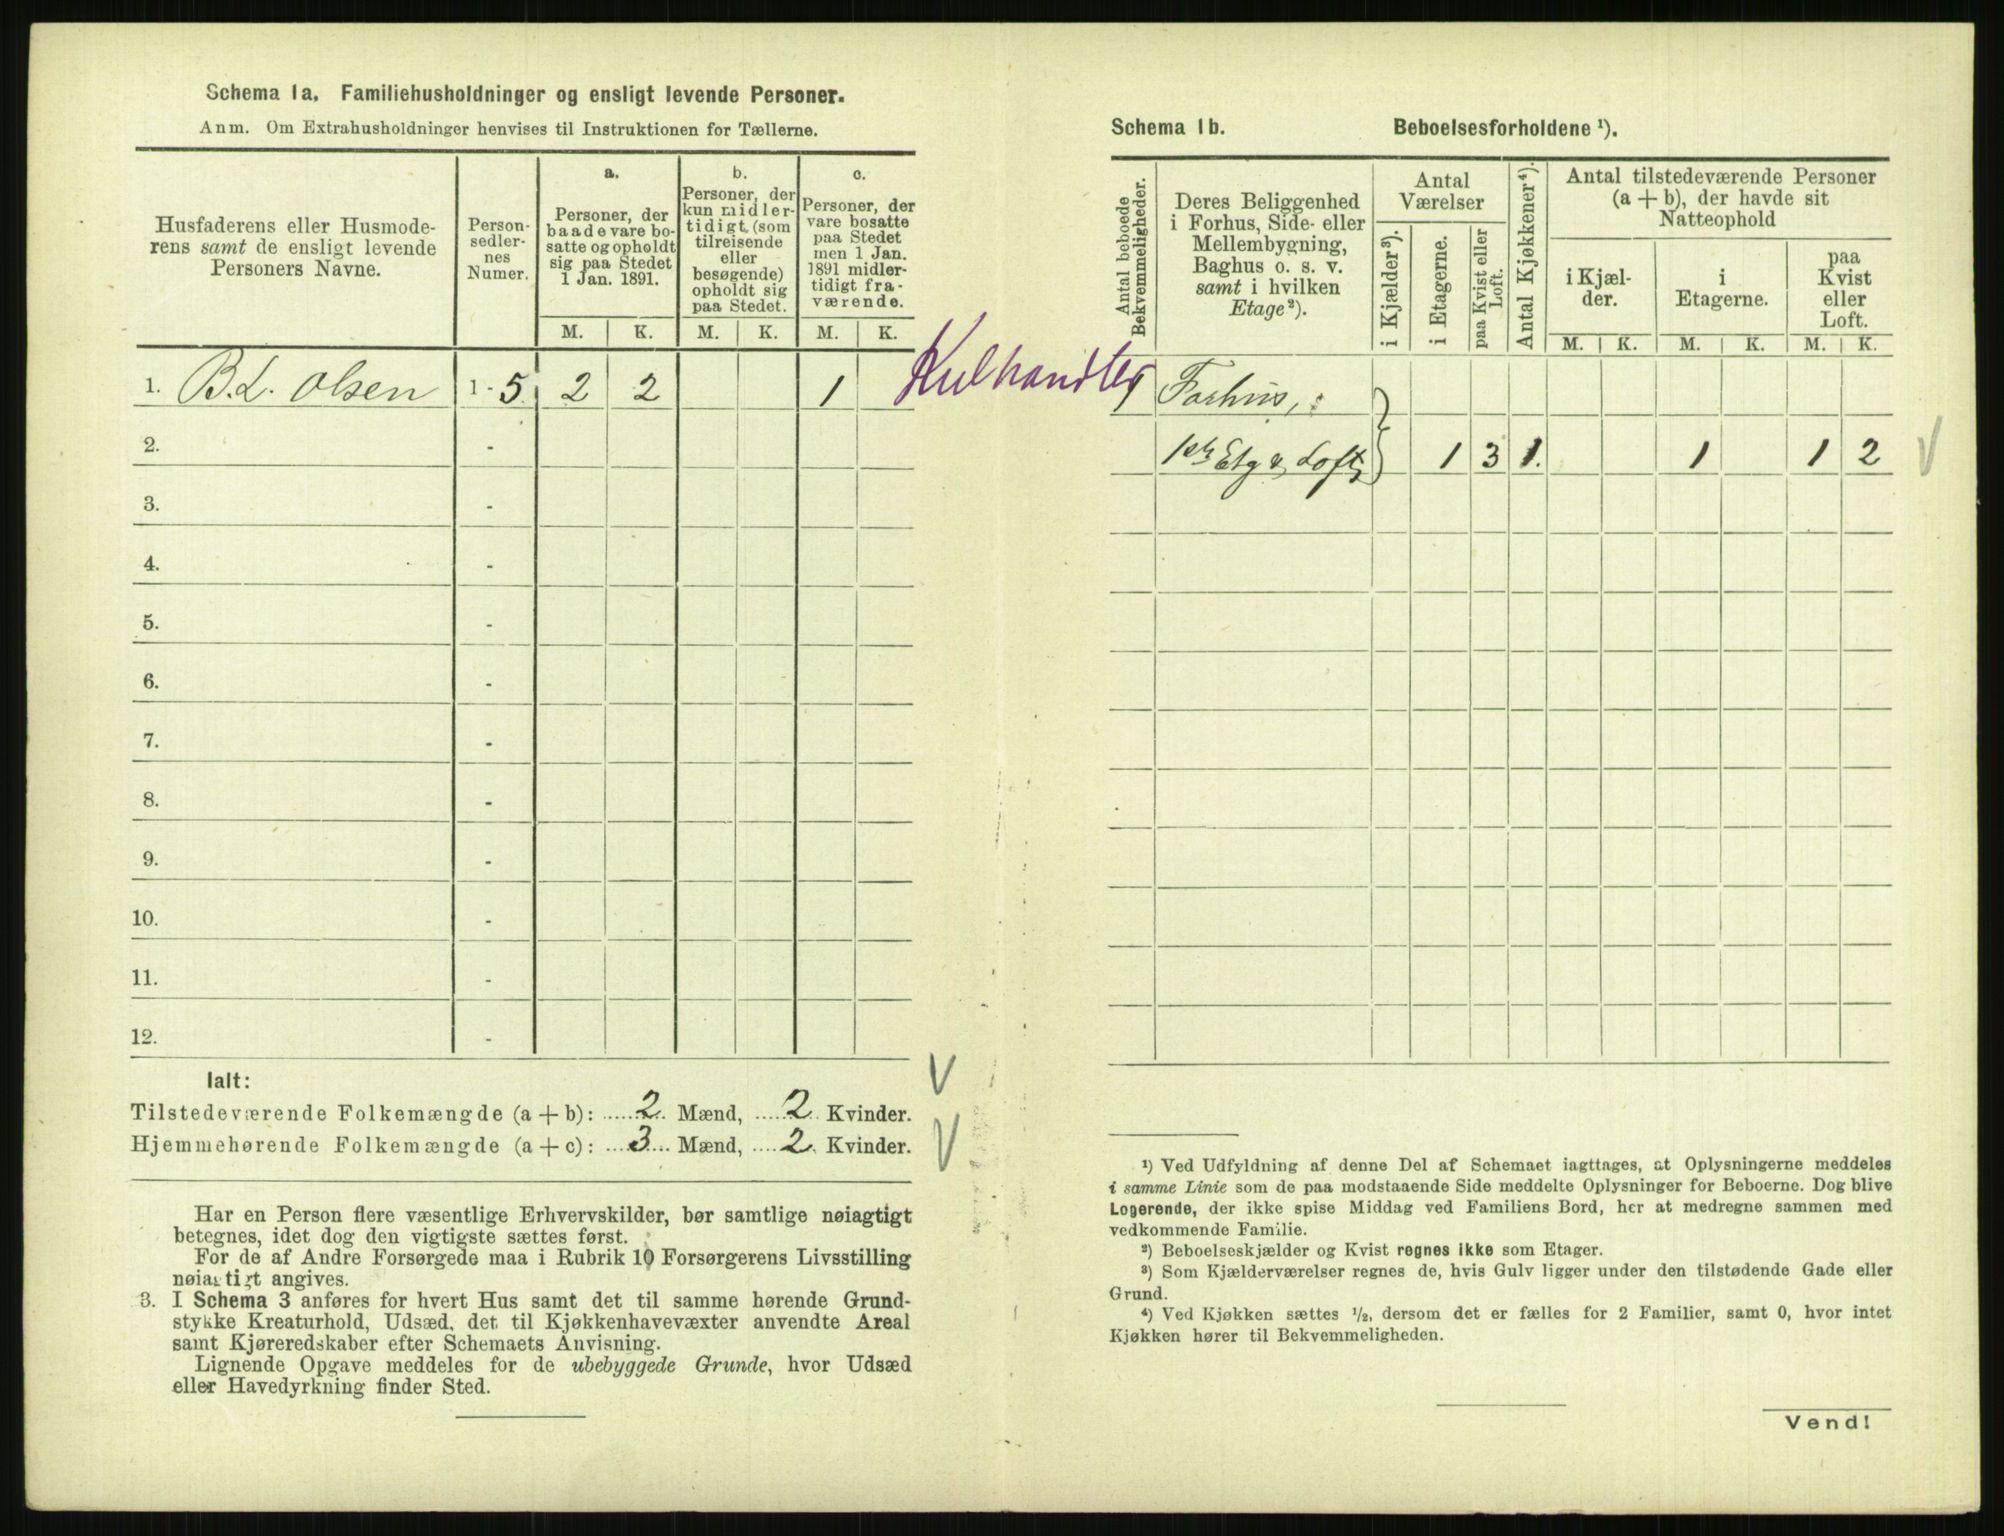 Schema 1a. Familiehusholdninger og ensligt levende Personer.
Anm. Om Extrahusholdninger henvises til Instruktionen for Tællerne.
Husfaderens eller Husmode-
rens samt de ensligt levende
Personers Navne.
Person-
sedler-
nes
Numer.
a.
Personer, der
baade vare bo-
satte og opholdt
sig paa Stedet
1 Jan. 1891.
b.
Personer, der
kun midler-
tidigt (som
tilreisende
eller
besøgende)
opholdt sig
paa Stedet.
c.
Personer, der
vare bosatte
paa Stedet
men 1 Jan.
1891 midler-
tidigt fra-
værende.
M. K. M. K. M. K.
1. B. L. Olsen 1 - 5 2 2 1
Kulhandler
2. -
3. -
4. -
5. -
6. -
7. -
8. -
9. -
10. -
11. -
12. -
Ialt:
Tilstedeværende Folkemængde (a + b): 2 Mænd, 2 Kvinder.
Hjemmehørende Folkemængde (a + c): 3 Mænd, 2 Kvinder.
Har en Person flere væsentlige Erhvervskilder, bør samtlige nøiagtigt
betegnes, idet dog den vigtigste sættes først.
For de af Andre Forsørgede maa i Rubrik 10 Forsørgerens Livsstilling
nøiagtigt angives.
3. I Schema 3 anføres for hvert Hus samt det til samme hørende Grund-
stykke Kreaturhold, Udsæd, det til Kjøkkenhavevæxter anvendte Areal
samt Kjøreredskaber efter Schemaets Anvisning.
Lignende Opgave meddeles for de ubebyggede Grunde, hvor Udsæd
eller Havedyrkning finder Sted.
Schema 1b. Beboelsesforholdene ¹).
Antal beboede
Bekvemmeligheder.
Deres Beliggenhed
i Forhus, Side- eller
Mellembygning,
Baghus o. s. v.
samt i hvilken
Etage²).
Antal
Værelser
i Kjælder³).
i Etagerne.
paa Kvist eller
Loft.
Antal Kjøkkener⁴).
Antal tilstedeværende Personer
(a + b), der havde sit
Natteophold
i Kjæl-
der.
i
Etagerne.
paa
Kvist
eller
Loft.
M. K. M. K. M. K.
Forhus,
1ste Etg & Loft 1 3 1. 1 1 2
¹) Ved Udfyldning af denne Del af Schemaet iagttages, at Oplysningerne meddeles
i samme Linie som de paa modstaaende Side meddelte Oplysninger for Beboerne. Dog blive
Logerende, der ikke spise Middag ved Familiens Bord, her at medregne sammen med
vedkommende Familie.
²) Beboelseskjælder og Kvist regnes ikke som Etager.
³) Som Kjælderværelser regnes de, hvis Gulv ligger under den tilstødende Gade eller
Grund.
⁴) Ved Kjøkken sættes 1/2, dersom det er fælles for 2 Familier, samt 0, hvor intet
Kjøkken hører til Bekvemmeligheden.
Vend!